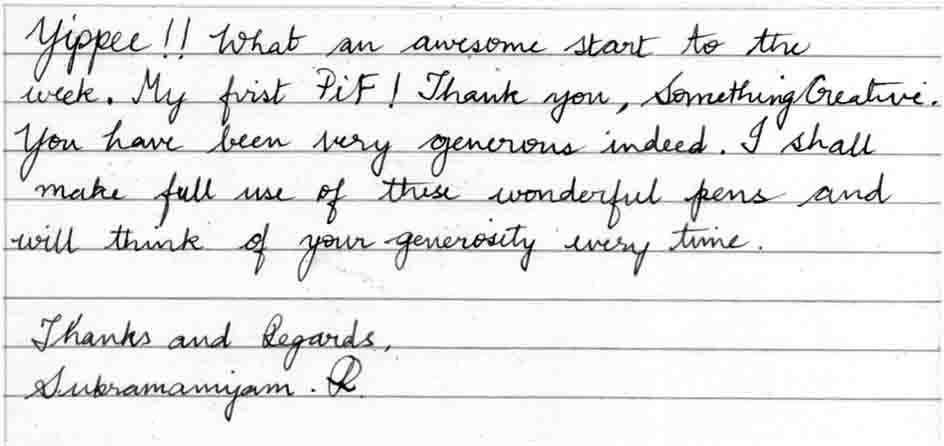 Yippee!! What an awesome start to the
week. My first PiF! Thank you, SomethingCreative.
You have been very generous indeed. I shall
make full use of these wonderful pens and
will think of your generosity every time.
Thanks and Regards,
Subramaniyam. R